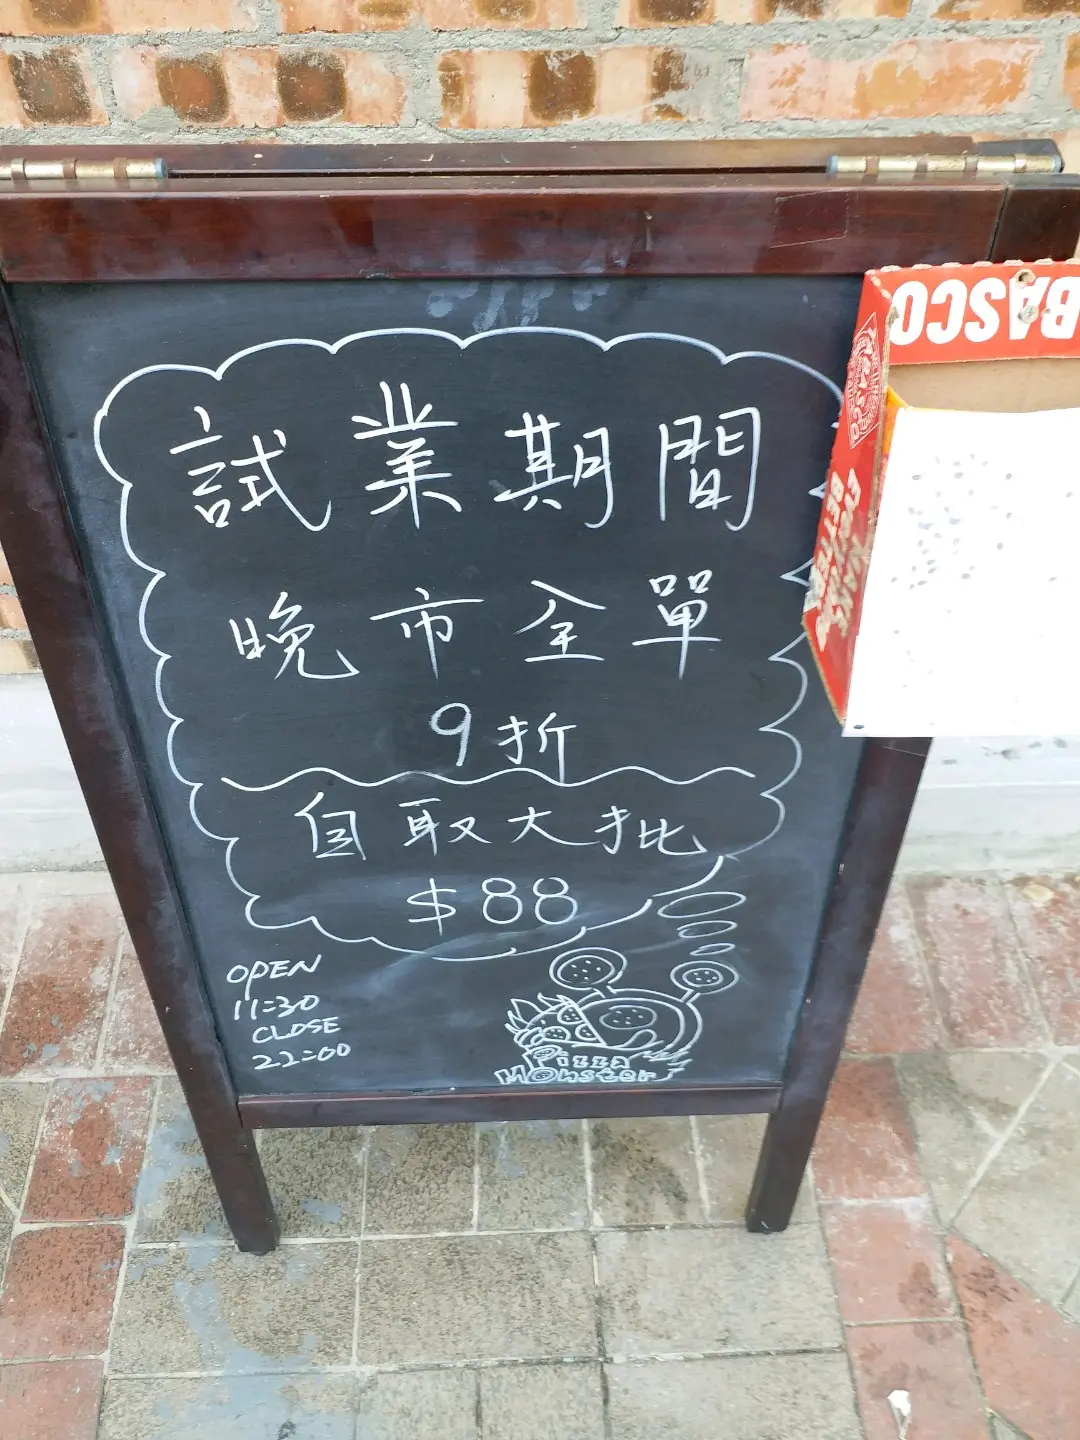 試業期間
晚市全單
9折
自取大批
$88
OPEN
11:30
CLOSE
22:00
Pizza
Monster
BASCO